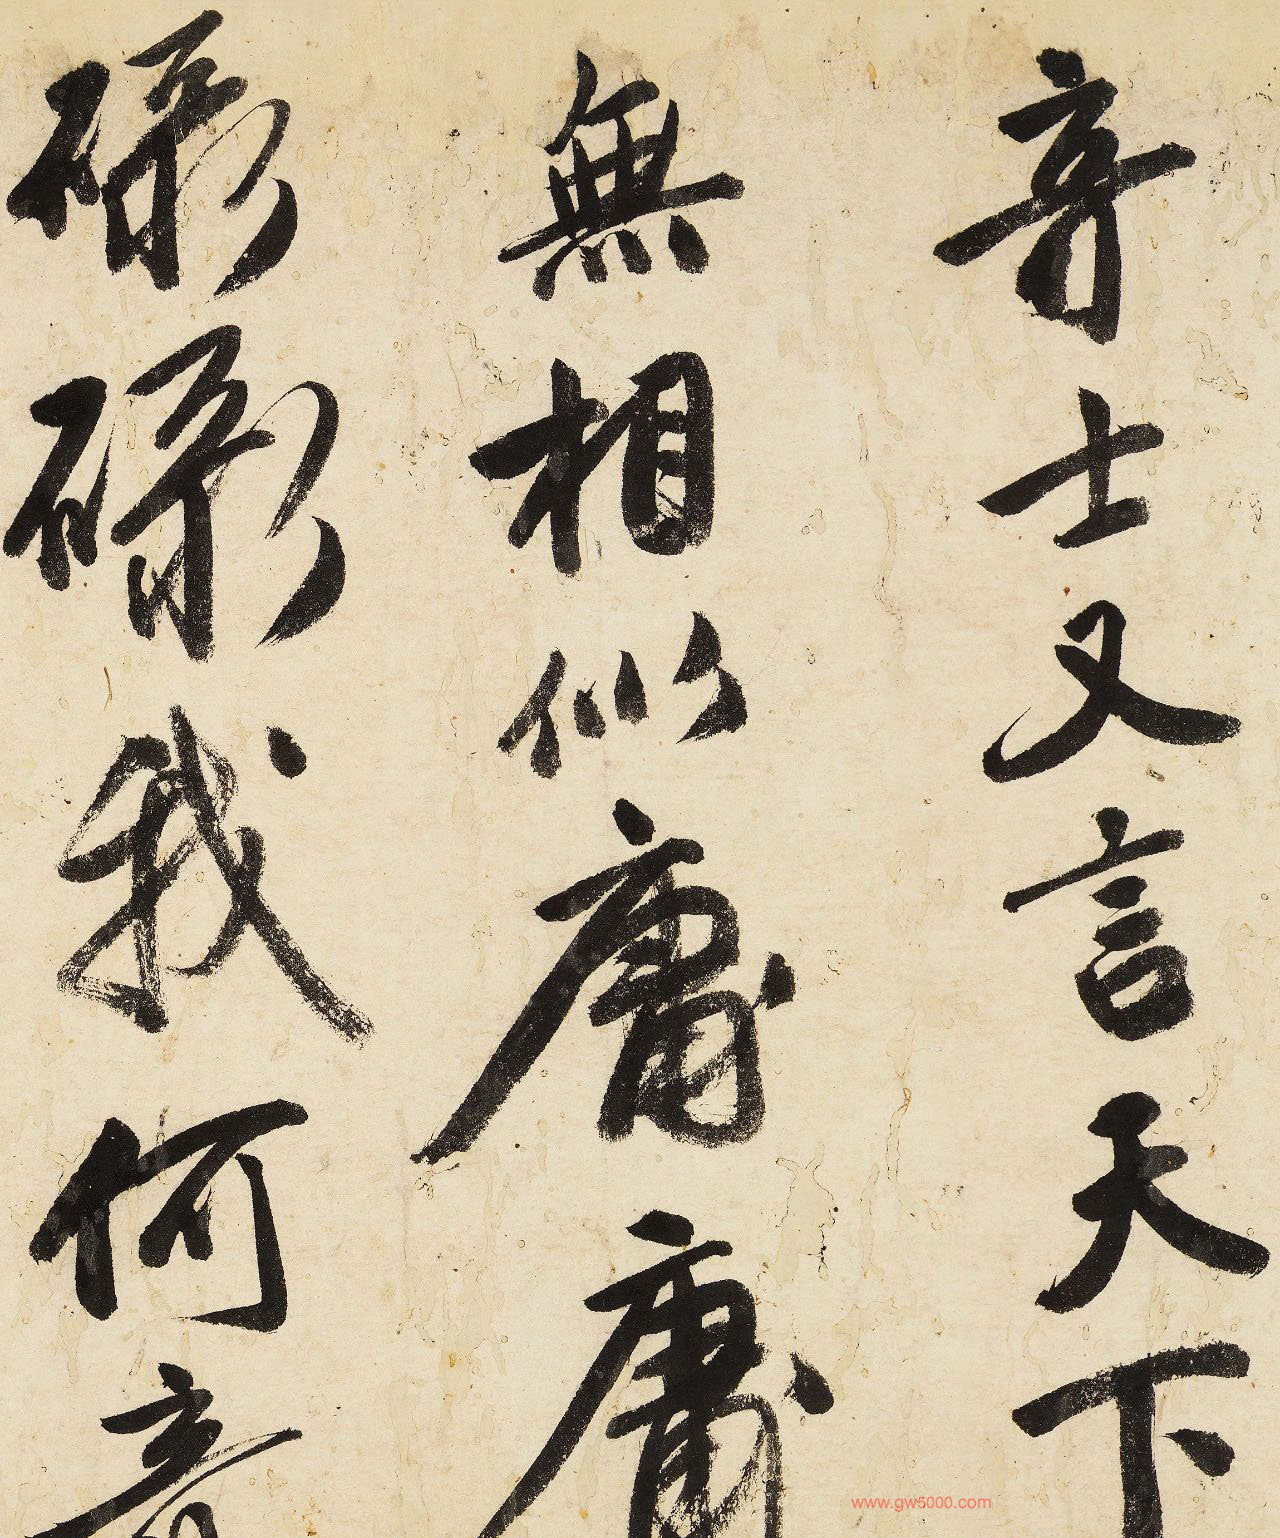 竒士又言天下
無相似庸庸
碌碌我何竒
www.gw5000.com